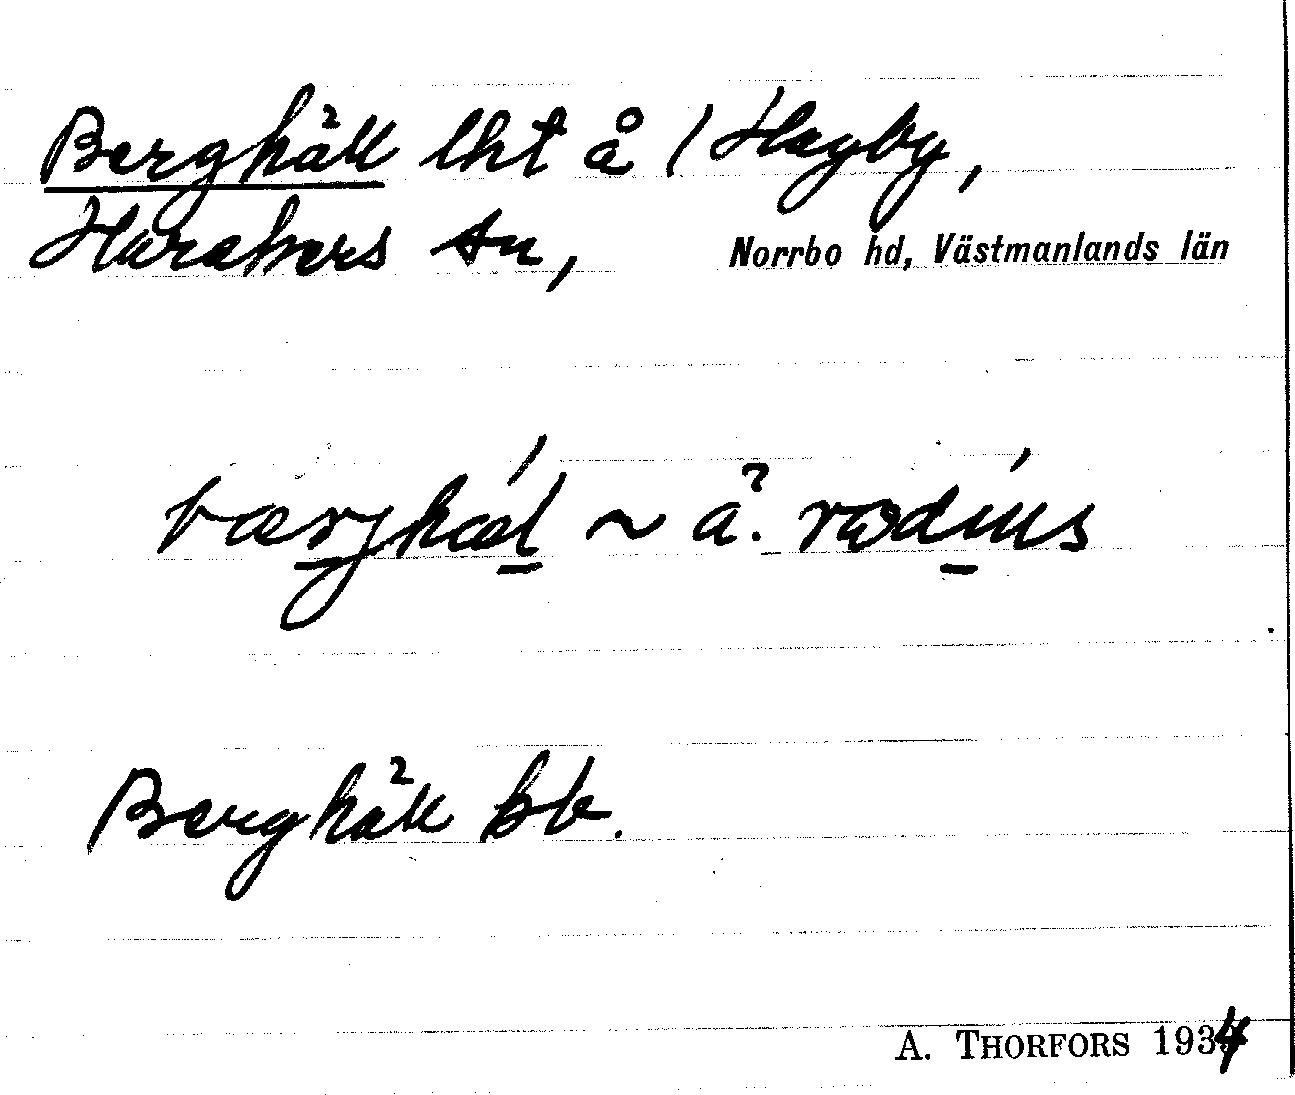 Berghäll lht å 1 Hagby,
Harakers sn, Norrbo hd, Västmanlands län
~
Berghäll bb.
A. THORFORS 1934